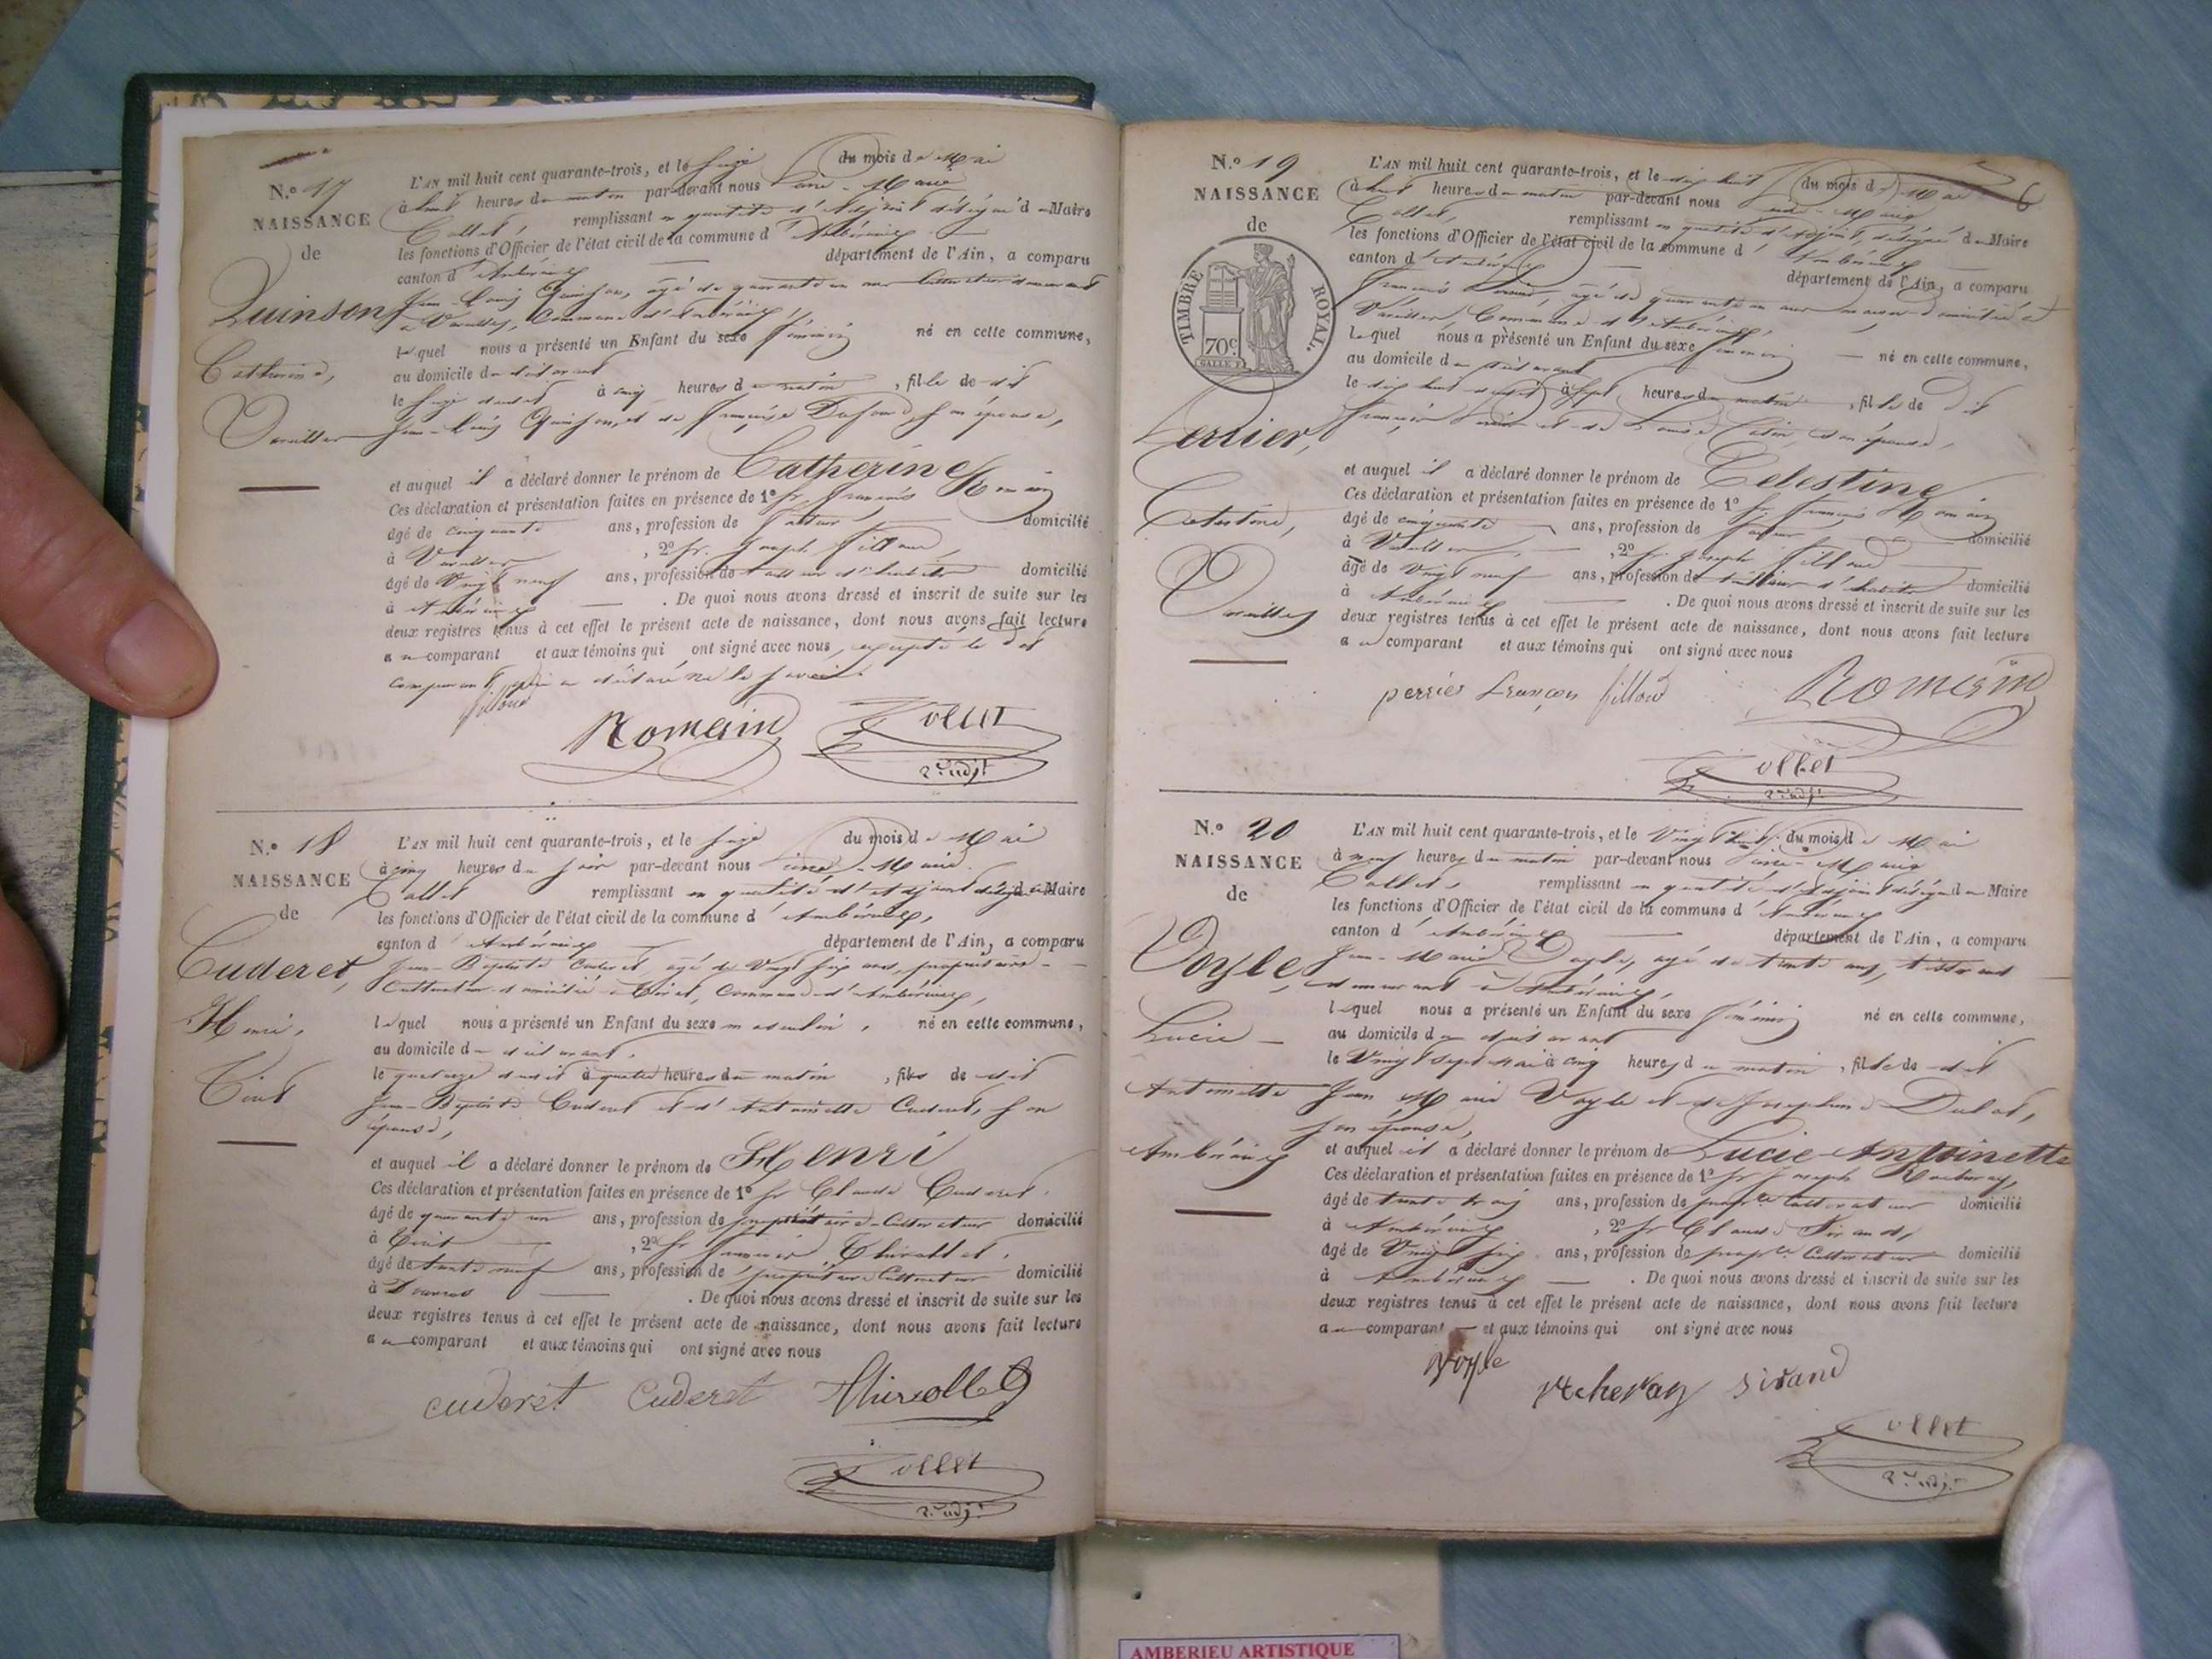 N.º 17
NAISSANCE
de
Quinson
Catherine,
Vareilles
L'AN mil huit cent quarante-trois, et le seize du mois de Mai
à huit heures du matin par-devant nous Pierre-Marie
Collet, remplissant en qualité d'Adjoint délégué du Maire
les fonctions d'Officier de l'état civil de la commune d'Ambérieux
canton d'Ambérieux département de l'Ain, a comparu
Jean-Louis Quinson, âgé de quarante un ans cultivateur demeurant
à Vareilles, commune d'Ambérieux,
lequel nous a présenté un Enfant du sexe féminin né en cette commune,
au domicile du déclarant
le seize dudit à cinq heures du matin, fille de dit
Jean-Louis Quinson, et de Françoise son épouse,
et auquel il a déclaré donner le prénom de Catherine
Ces déclaration et présentation faites en présence de 1º Sr. François Romain
âgé de cinquante ans, profession de domicilié
à Vareilles, 2º Sr. Joseph Filloud
âgé de Vingt neuf ans, profession de tailleur d'habits domicilié
à Ambérieux. De quoi nous avons dressé et inscrit de suite sur les
deux registres tenus à cet effet le présent acte de naissance, dont nous avons fait lecture
au comparant et aux témoins qui ont signé avec nous, excepté le dit
comparant qui a déclaré ne le savoir.
filloud
Romain Collet
2.e adj.t
N.º 18
NAISSANCE
de
Cuderet,
Henri,
Tiret
L'AN mil huit cent quarante-trois, et le seize du mois de Mai
à cinq heures du soir par-devant nous Pierre-Marie
Collet remplissant en qualité d'adjoint délégué du Maire
les fonctions d'Officier de l'état civil de la commune d'Ambérieux,
canton d'Ambérieux département de l'Ain, a comparu
Jean-Baptiste Cuderet, âgé de Vingt six ans, propriétaire-
Cultivateur domicilié à Tiret, commune d'Ambérieux,
lequel nous a présenté un Enfant du sexe masculin, né en cette commune,
au domicile du déclarant,
le quatorze dudit à quatre heures du matin, fils de dit
Jean-Baptiste Cuderet et d'Antoinette Cuderet, son
épouse,
et auquel il a déclaré donner le prénom de Henri
Ces déclaration et présentation faites en présence de 1º Sr Claude Cuderet,
âgé de quarante un ans, profession de propriétaire-Cultivateur domicilié
à Tiret, 2º Sr Thivollet,
âgé de trente neuf ans, profession de propriétaire Cultivateur domicilié
à Douvres. De quoi nous avons dressé et inscrit de suite sur les
deux registres tenus à cet effet le présent acte de naissance, dont nous avons fait lecture
au comparant et aux témoins qui ont signé avec nous
cuderet Cuderet Thivollet
Collet
2.e adj.t
6
N.º 19
NAISSANCE
de
TIMBRE ROYAL.
70c
Perrier,
Celestine,
Vareilles
L'AN mil huit cent quarante-trois, et le dix huit du mois de Mai
à huit heures du matin par-devant nous Pierre-Marie
Collet, remplissant en qualité d'Adjoint, délégué du Maire
les fonctions d'Officier de l'état civil de la commune d'Ambérieux
canton d'Ambérieux département de l'Ain, a comparu
François Perrier, âgé de quarante un ans maçon domicilié à
Vareilles, commune d'Ambérieux,
lequel nous a présenté un Enfant du sexe féminin né en cette commune,
au domicile du déclarant
le dix huit dudit à sept heures du matin, fille de dit
François Perrier et de Louise son épouse,
et auquel il a déclaré donner le prénom de Celestine
Ces déclaration et présentation faites en présence de 1º Sr. François Romain
âgé de cinquante ans, profession de domicilié
à Vareilles, 2º Sr Joseph Filloud
âgé de Vingt neuf ans, profession de tailleur d'habits domicilié
à Ambérieux. De quoi nous avons dressé et inscrit de suite sur les
deux registres tenus à cet effet le présent acte de naissance, dont nous avons fait lecture
au comparant et aux témoins qui ont signé avec nous
perrier françois filloud Romain
Collet
2.e adj.t
N.º 20
NAISSANCE
de
Voyle,
Lucie-
Antoinette
Ambérieux
L'AN mil huit cent quarante-trois, et le Vingt huit du mois de Mai
à neuf heures du matin par-devant nous Pierre-Marie
Collet, remplissant en qualité d'Adjoint délégué du Maire
les fonctions d'Officier de l'état civil de la commune d'Ambérieux
canton d'Ambérieux département de l'Ain, a comparu
Jean-Marie Voyle, âgé de trente ans, tisserand
demeurant à Ambérieux,
lequel nous a présenté un Enfant du sexe féminin né en cette commune,
au domicile du déclarant
le Vingt sept mai à cinq heures du matin, fille de dit
Jean Marie Voyle et de Josephine Dubot,
son épouse,
et auquel il a déclaré donner le prénom de Lucie-Antoinette
Ces déclaration et présentation faites en présence de 1º Sr Joseph
âgé de trente trois ans, profession de prop.re Cultivateur domicilié
à Ambérieux, 2º Sr Claude Sirand,
âgé de Vingt six ans, profession de prop.re Cultivateur domicilié
à Ambérieux. De quoi nous avons dressé et inscrit de suite sur les
deux registres tenus à cet effet le présent acte de naissance, dont nous avons fait lecture
au comparant et aux témoins qui ont signé avec nous
Voyle sirand
Collet
2.e adj.t
AMBERIEU ARTISTIQUE